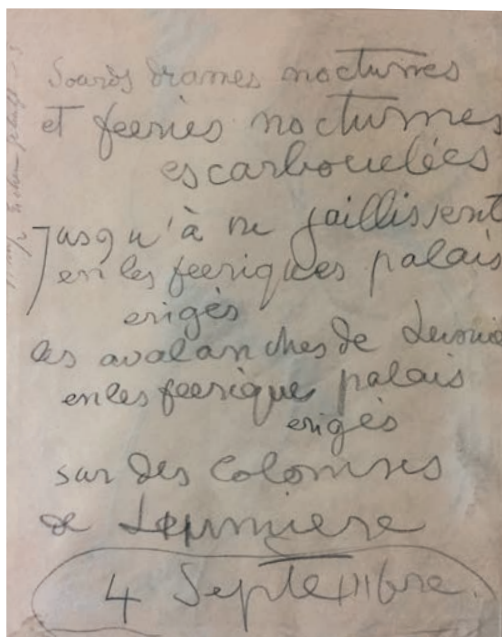 Sourds drames nocturnes
et feeries nocturnes
escarbouclées
Jusqu'à ne jaillissent
en les feeriques palais
erigès
les avalanches de
en les feerique palais
erigès
sur des colonnes
de Lumiere
4 Septembre